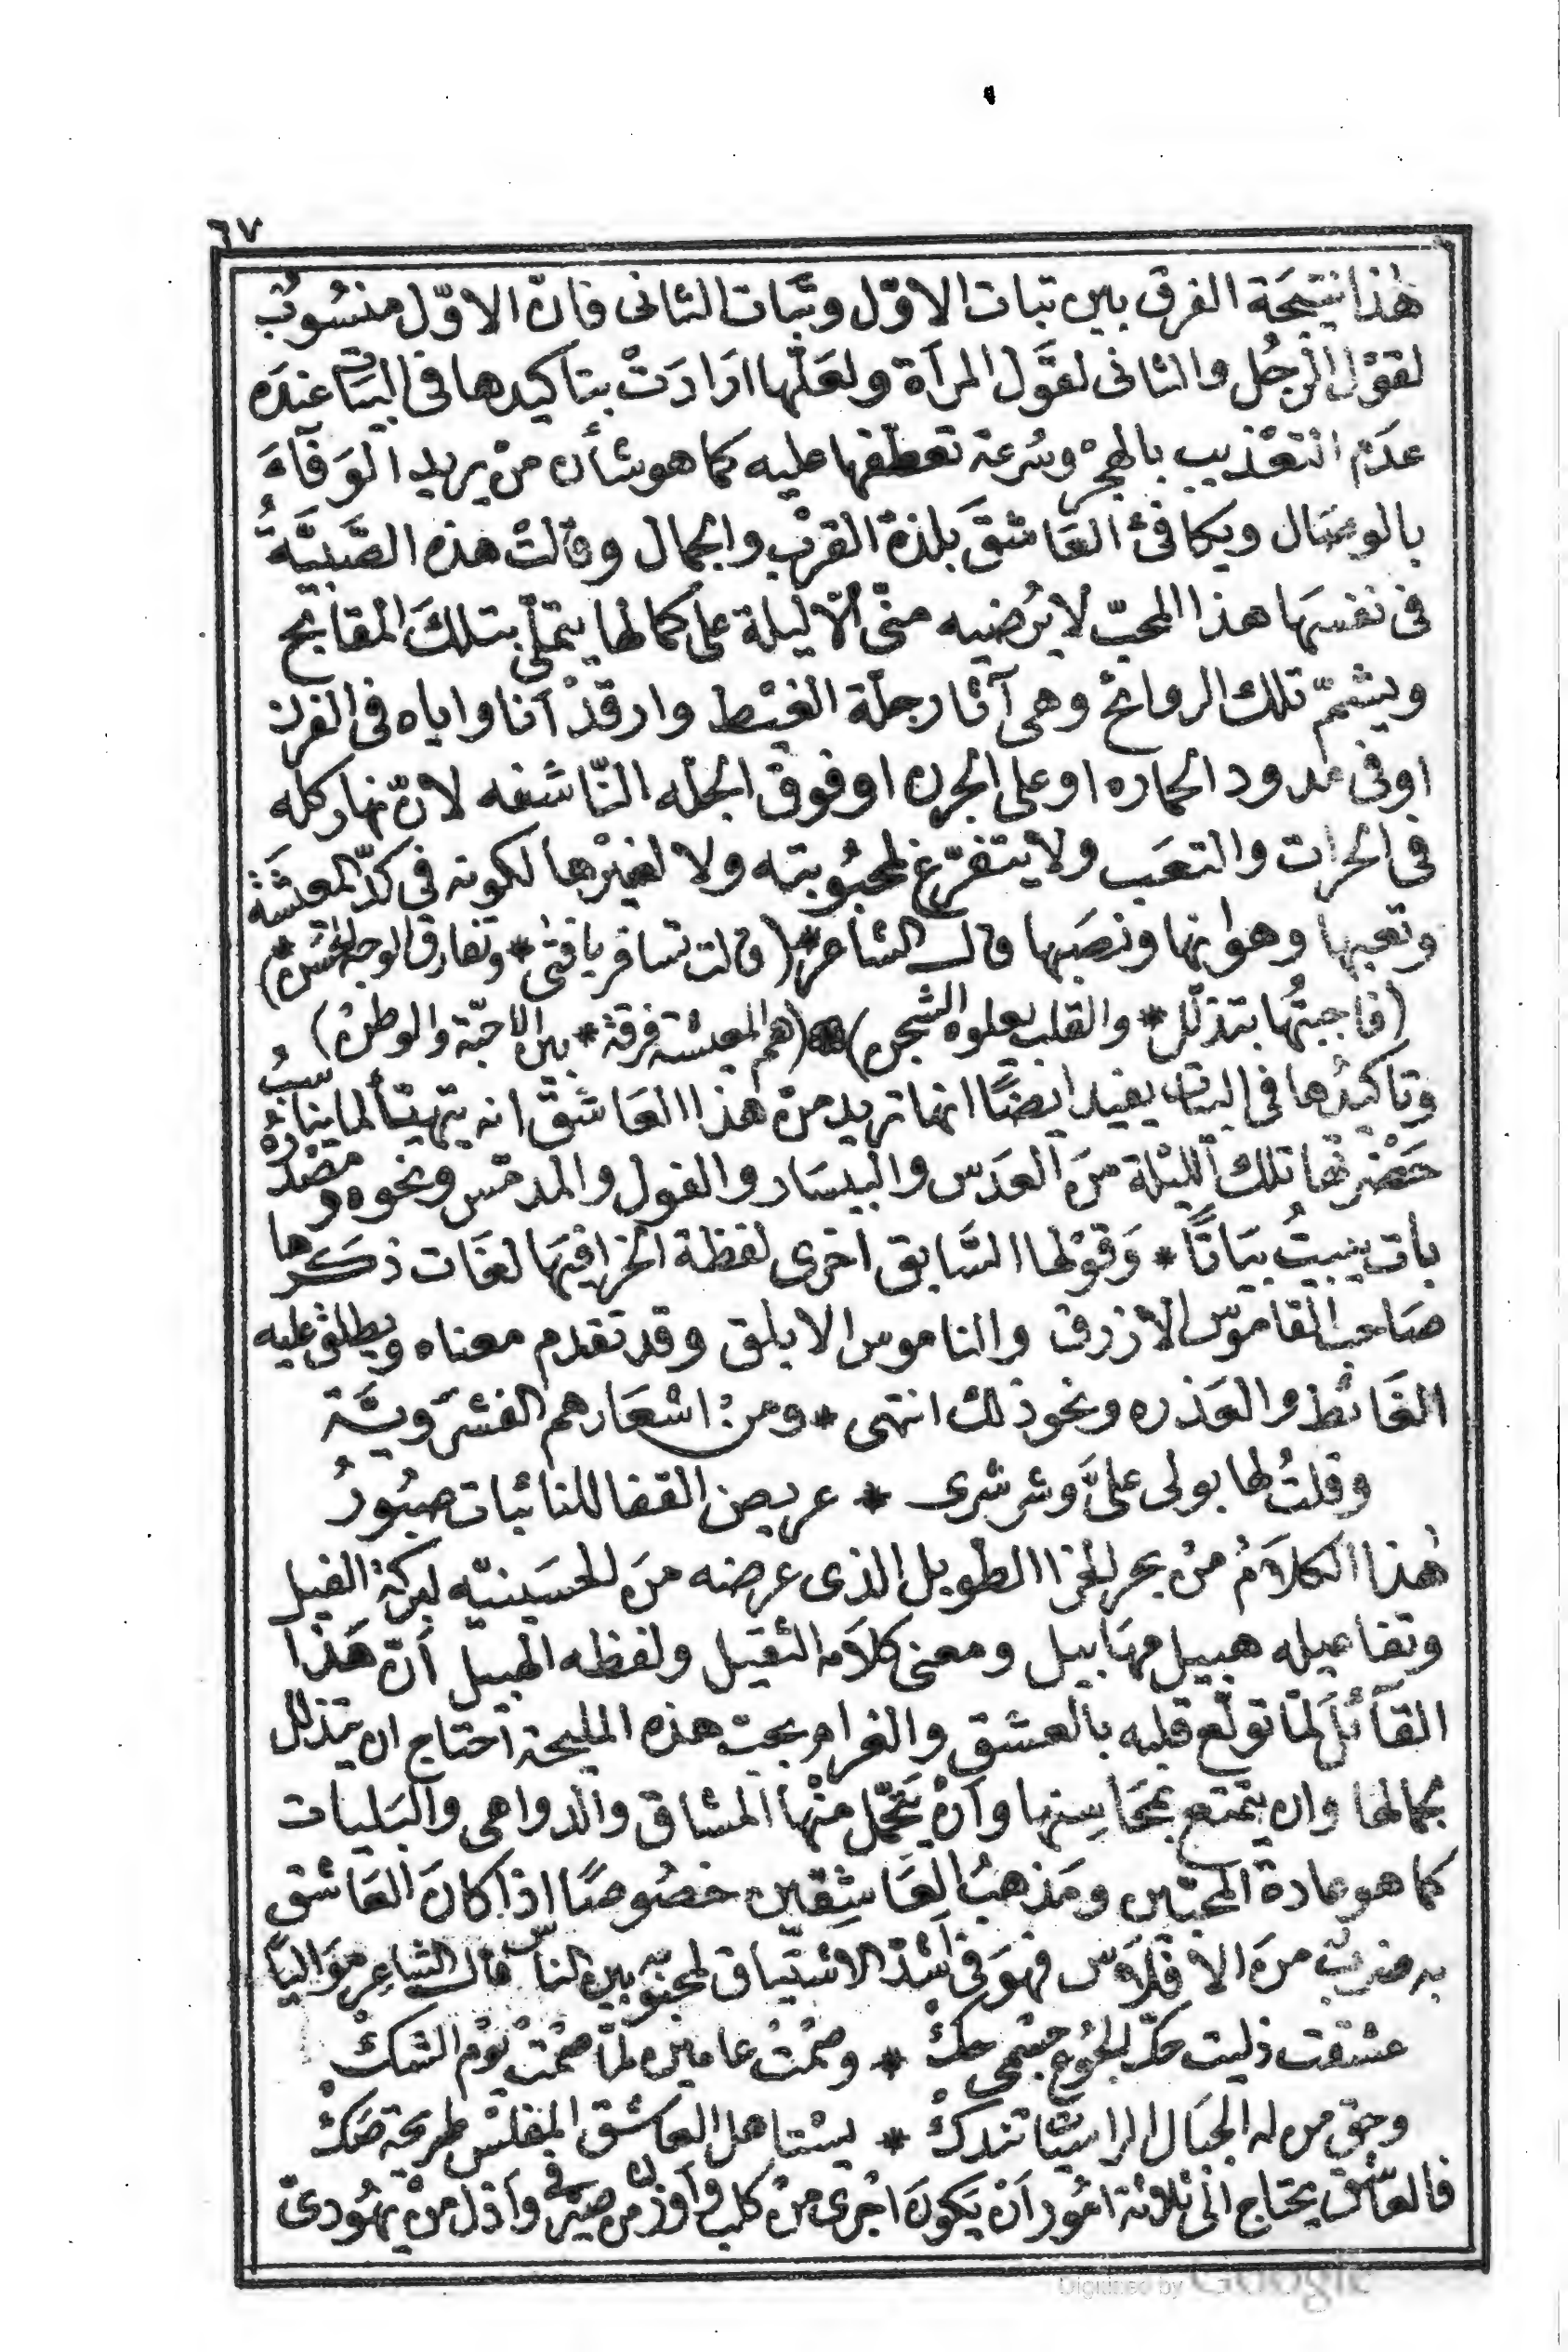 ٦٧
هٰذا نتيجَة الفرق بين تبات الاوّل وتَبات الثانى فانّ الاوّل منسُوبٌ
لقوْل الرجُل والثانى لقَول المرأة ولعَلّها ارَادَتْ بتاكيدها فى البيَات عندَه
عدَم التعْذيب بالهجرْ وسُرعة تعطّفها عليه كما هو شأن منْ يريد الوَفآءَ
بالوصَال ويكافئ العَاشقَ بلذة القرْب والجمال وقالتْ هذه الصَّبيَّةُ
فى نفسهَا هذا المحبّ لا يرُضيه منّى الّا ليلة على كمالها يتملّى بتلكَ المقابح
ويشمّ تلك الروائح وهى آثار جلّة الغيْط وارقدْ أنا واياه فى الفرن
اوفى مدود الحماره اوعلى الجرن اوفوق الجله النّاشفه لانّ نهاركله
فى الحراث والتعَب ولا يتفرّغ لمحبُوبته ولا لغيرْها لكونه فى كدّ المعشَة
وتعبها وهوانها ونصَبها قال الشاعر * (قالت تسافر يا فتىٰ * وتفارق الوجه الحسَن *)
(فاجبتُها بتذلّل * والقلب يعلوه الشجن) (همّ المعيشة فرقة * بين الاحبّة والوطنْ)
وتاكيدُها فى البيات يفيد ايضًا انها تريد منْ هٰذا العَاشق انه يتهيّأ لما يناسبُ
حَضْرتها تلك الليْلة منَ العَدَس والبيسَار والفول والمدمّس ونحوه ومصْدرُهُ
باتَ يبيتُ بيَاتًا * وَقوْلها السَّابق اخرى لفظة الخرا فيهَا لغَات ذكَرها
صَاحب القاموس الازرق والناموس الابلق وقد تقدم معناه ويطلق عليه
الغَائط والعَذره ونحو ذلك انتهى * ومنْ اشعَارهم الفشرَويّة
وقلتُ لها بولى علىَّ وشرشرى * عريض القفا للنائبات صبُورُ
هٰذا الكلاَمُ منْ بحر الخرا الطويل الذى عرضه منَ الحسَينيّه لبركة الفيل
وتفاعيله هبيل مهَابيل ومعنى كلاَمه الثقيل ولفظه الهبيل أنّ هَذا
القآئل لمّا تولّع قلبه بالعشق والغرام بحبّ هذه المليحة احتاج ان يتذلل
بجمالها وان يتمتع بمحَاسِنها وأنْ يتحَمّل منْها المشاق والدواهى والبَليات
كما هو عادة المحبّين ومَذهبُ العَاشِقين خصُوصًا اذا كانَ العَاشق
به ضربٌ منَ الافلاَس فهوَ فى أشدّ الاشتيَاق لمحبُوبه بين الناس قال الشاعر موَاليًا
عشقت ذليت حكّ الجُوع جسْمى حكّْ * وصُمْتُ عامين لمّا صُمْتْ يَوْم الشكّْ
وحقّ من له الجبَال الراسيَات تندكّْ * يستاهل العاشق المفلسْ طريحة صَكّْ
فالعَاشق يحتاج الى ثلاثة أمُور أنْ يَكونَ اجْرى منْ كلب وأوزن من صَيْرفى وأذل منْ يهُودىّ